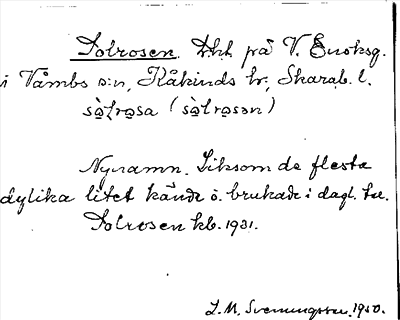 Solrosen. Lht på V. Enoksg.
i Våmbs s:n, Kåkinds hr, Skarab. l.
sò̱lro̱sa (sò̱lro̱sən)
Nynamn. Liksom de flesta
dylika litet kände o. brukade i dagl. tal.
Solrosen kb. 1931.
L. M. Svenungsson. 1950.